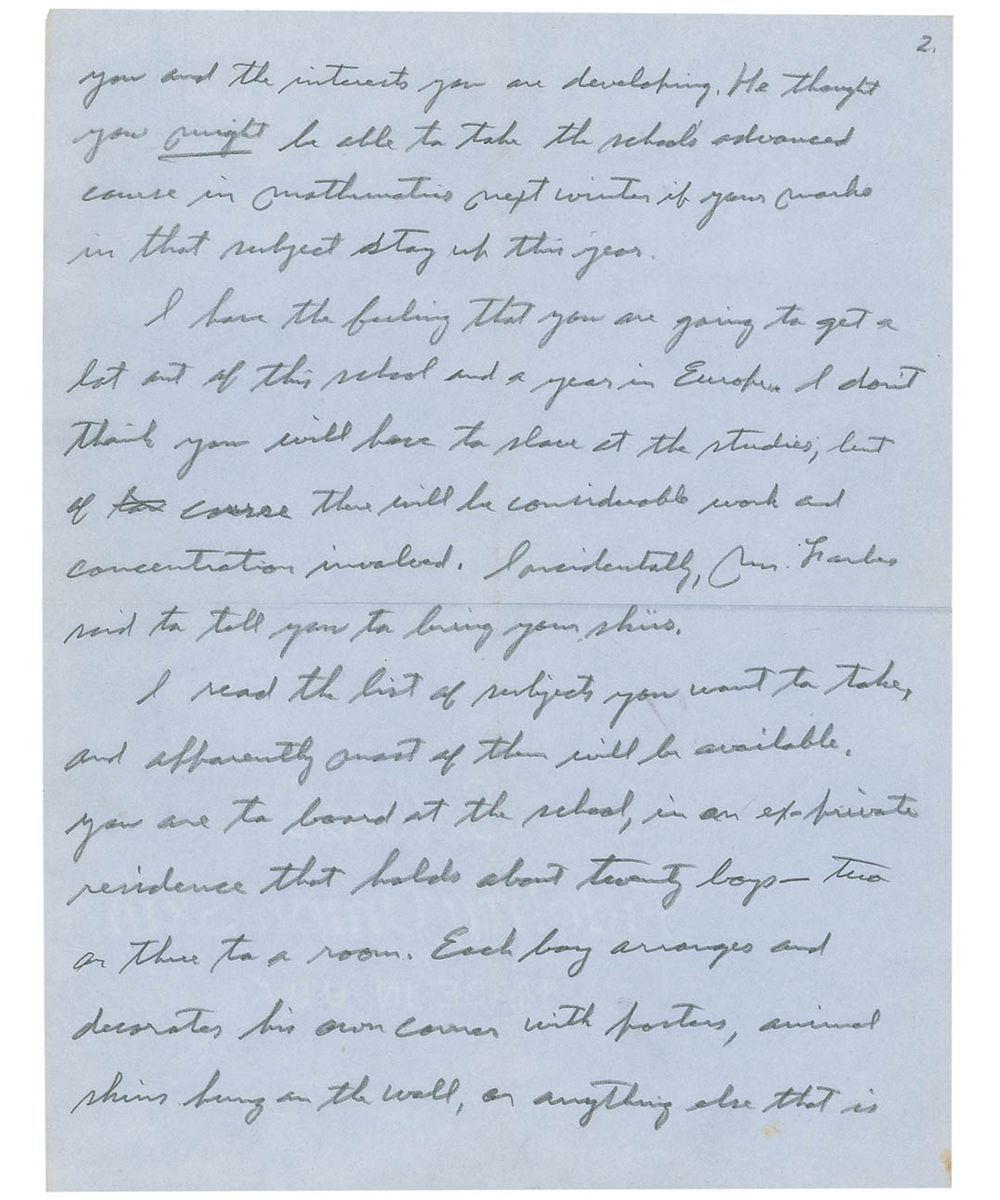 2.
you and the interests you are developing. He thought
you might be able to take the school's advanced
course in mathematics next winter if your marks
in that subject stay up this year.
I have the feeling that you are going to get a
lot out of this school and a year in Europe. I don't
think you will have to slave at the studies, but
of course there will be considerable work and
concentration involved. Incidentally, Mr. Forbes
said to tell you to bring your skiis.
I read the list of subjects you want to take,
and apparently most of them will be available.
You are to board at the school, in an ex-private
residence that holds about twenty boys— two
or three to a room. Each boy arranges and
decorates his own corner with posters, animal
skins hung on the wall, or anything else that is